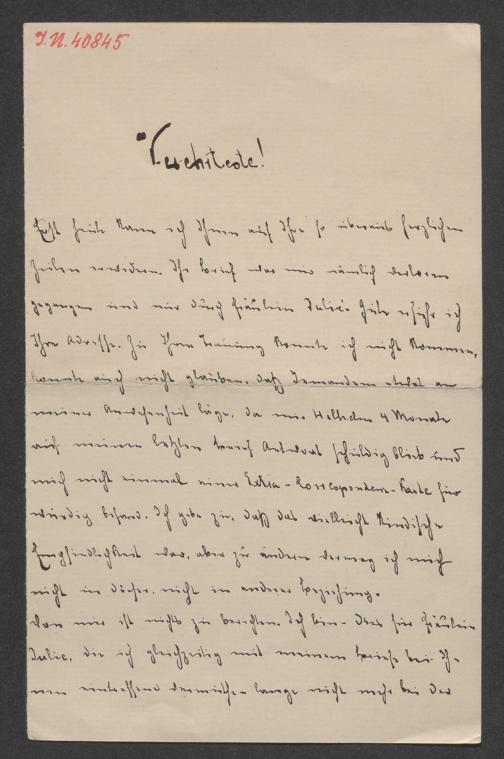 I.N. 40845
Verehrteste!
Erst heute kann ich Ihnen auf Ihre so überaus herzlichen
Zeilen erwidern. Ihr Brief war mir nämlich verloren
gegangen und nur durch Fräulein Julie's Güte erfuhr ich
Ihre Adresse. Zu Ihrer Trauung konnte ich nicht kommen,
konnte auch nicht glauben, daß Jemandem etwas an
meiner Anwesenheit läge, da mir 4 Monate
auf meinen letzten Brief Antwort schuldig blieb und
mich nicht einmal einer Extra-Correspondenz-Karte für
würdig befand. Ich gebe zu, daß das vielleicht kindische
Empfindlichkeit war, aber zu ändern vermag ich mich
nicht in dieser, nicht in anderer Beziehung.
Von mir ist nichts zu berichten. Ich bin - dies für Fräulein
Julie, die ich gleichzeitig mit meinem Briefe bei Ih-
nen eintreffend vermuthe - lange nicht mehr bei der